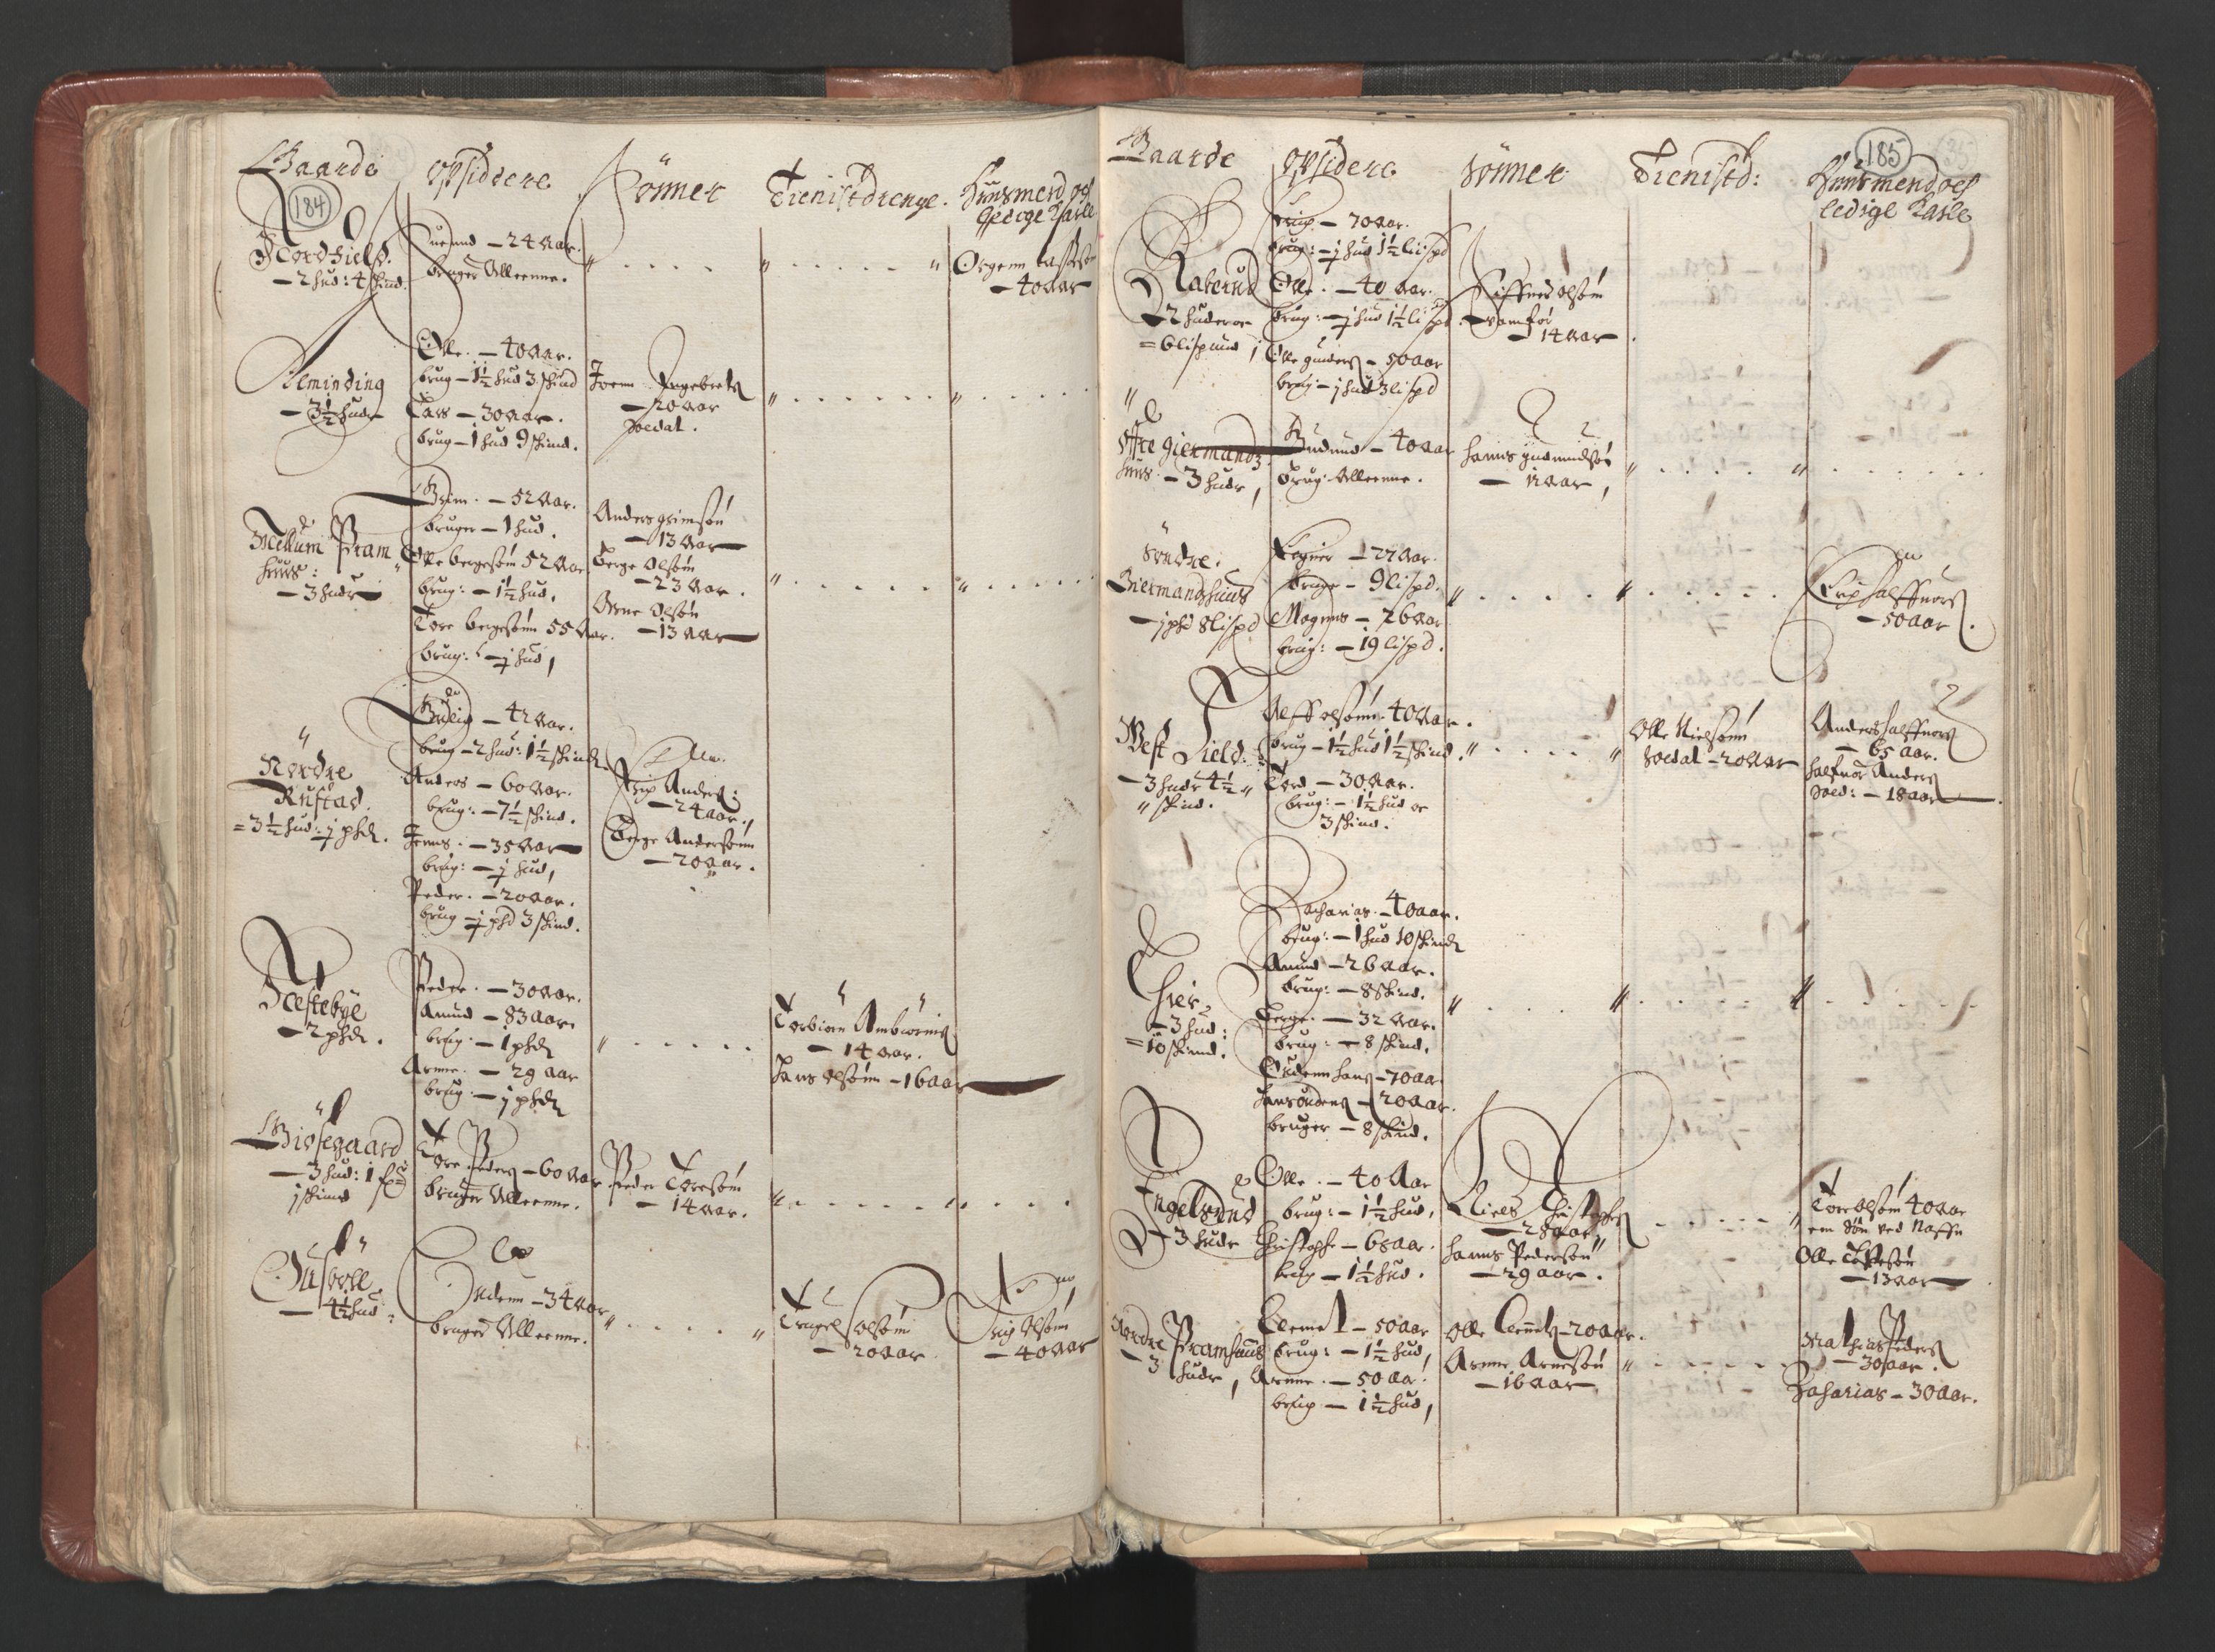 Gaarde
Opsidere
Sönner
Tienistdrenge.
Huusmend och
Ledige Karle
184
Nordfield.
— 2 hud: 4 skind.
Amund — 24 aar.
bruger Alleenne.
— 40 aar
Fleminding
— 3½ hudr
Olle. — 40 aar.
brug — 1½ hud 3 skind
Lars — 30 aar.
brug — 1 hud 9 skind.
Joenn Ingebretz
— 20 aar
soldat.
Mellum Fram
huus:
— 3 hudr
Grim. — 52 aar.
bruger — 1 hud.
Olle bergesönn 52 aar
brug: — 1½ hud,
Tore bergesönn 55 aar.
brug: — j hud,
Anders grimsön
— 13 aar
Berge olsönn
— 23 aar.
Arne olsön
— 13 aar
Nordre
Rustad.
= 3½ hud: j phd.
Gulig — 42 aar.
brug — 2 hud: 1½ skind
Anders — 60 aar.
brug: — 7½ skind.
Jenns. — 35 aar
brug: — j hud,
Peder. — 20 aar.
brug — j phd 3 skind.
Erip Anders:
— 24 aar.,
Berge Andersönn
— 20 aar.
Nestebye
— 2 phd.
Peder. — 30 aar.
Amund — 83 aar.
brug: — 1 phd
Arnne. — 29 aar
brug: — j phd
Torbiørn Ambiörns
— 14 aar.
Hans olsönn — 16 aar
Gislegaard
— 3 hud: 1 fr
j skind
Tore Peders — 60 aar
bruger Alleenne.
Peder Toresönn
— 14 aar.
— 4½ hud:
Audenn — 34 aar
bruger Alleenne.
Trugels olsönn
— 20 aar
Erig olsönn
— 40 aar
Gaarde
Opsidere
Sönner
Tienistd:
Huusmend och
ledige Karle
185
Raterud
2 huder oc
= 6 lispund
Erig — 70 aar.
brug: — j hud 1½ lispd
Olle. — 40 aar.
brug: — j hud 1½ lispd.
Olle gunders — 50 aar
brug — j hud 3 lispd
Siffuer olsönn
vanför
— 14 aar.
Øffre Giermandz
huus. — 3 hudr,
Gudmund — 40 aar
brug: Alleenne.
Hanns gudmundsön
— 12 aar,
Söndre.
Giermandzhuus
— j phd 8 lispd
— 27 aar.
bruger — 9 lispd.
Mogens — 26 aar
brug: — 19 lispd.
Erip halffuors
— 50 aar.
Westfield:
— 3 hudr 4½
skind.
Alff olsönn. 40 aar.
brug — 1½ hud 1½ skind.
Tord — 30 aar.
brug: — 1½ hud oc
3 skind.
Olle Nielsönn
soldat — 20 aar
Anders halffuors
— 65 aar.
halfuor Anders
sold: — 18 aar.
Lier
— 3 hud:
= 10 skind.
Zacharias. — 40 aar.
brug: — 1 hud 10 skind
Amund — 26 aar.
brug: — 8 skind.
Berge. — 32 aar.
brug: — 8 skind.
Oudenn hans — 70 aar
Hans oudens — 20 aar.
bruger — 8 skind.
Engelsrud
— 3 hudr
Olle. — 40 aar
brug: — 1½ hud,
Christopher — 68 aar.
brug — 1½ hud.
Niels Christophers
— 28 aar,
Hanns Pedersön
— 29 aar.
Tore olsönn 40 aar
een sön ved naffn
Olle Toresön
— 13 aar
Nordre Framhuus
— 3 hudr,
Clemet — 50 aar
brug: — 1½ hud,
Arnne. — 50 aar.
brug — 1½ hud,
Olle Clemetz — 20 aar.
Arnne Arnesön
— 16 aar
Mathias Peders
— 30 aar.
Zacharias — 30 aar.